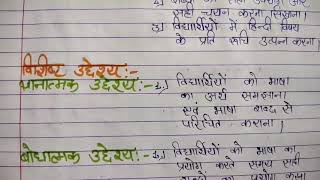 सही चयन करना सिखाना।
3) विद्यार्थियों में हिन्दी विषय
के प्रति रूचि उत्पन्न करना।
विशिष्ट उद्देश्य:-
ज्ञानात्मक उद्देश्य:- 1.) विद्यार्थियों को भाषा
का अर्थ समझाना
एवं भाषा शब्द से
परिचित कराना।
बोधात्मक उद्देश्य:- 1.) विद्यार्थियों को भाषा का
प्रयोग करते समय सही
का प्रयोग करना